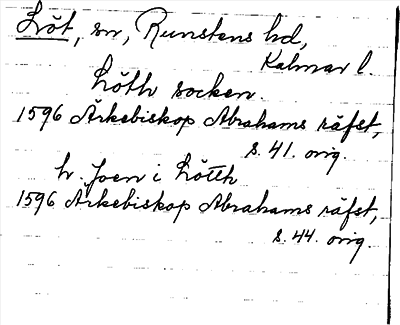 Löt, sn, Runstens hd,
Kalmar l.
Löth socken.
1596 Ärkebiskop Abrahams räfst,
s. 41. orig.
h. Joen i Lötth
1596 Ärkebiskop Abrahams räfst,
s. 44. orig.